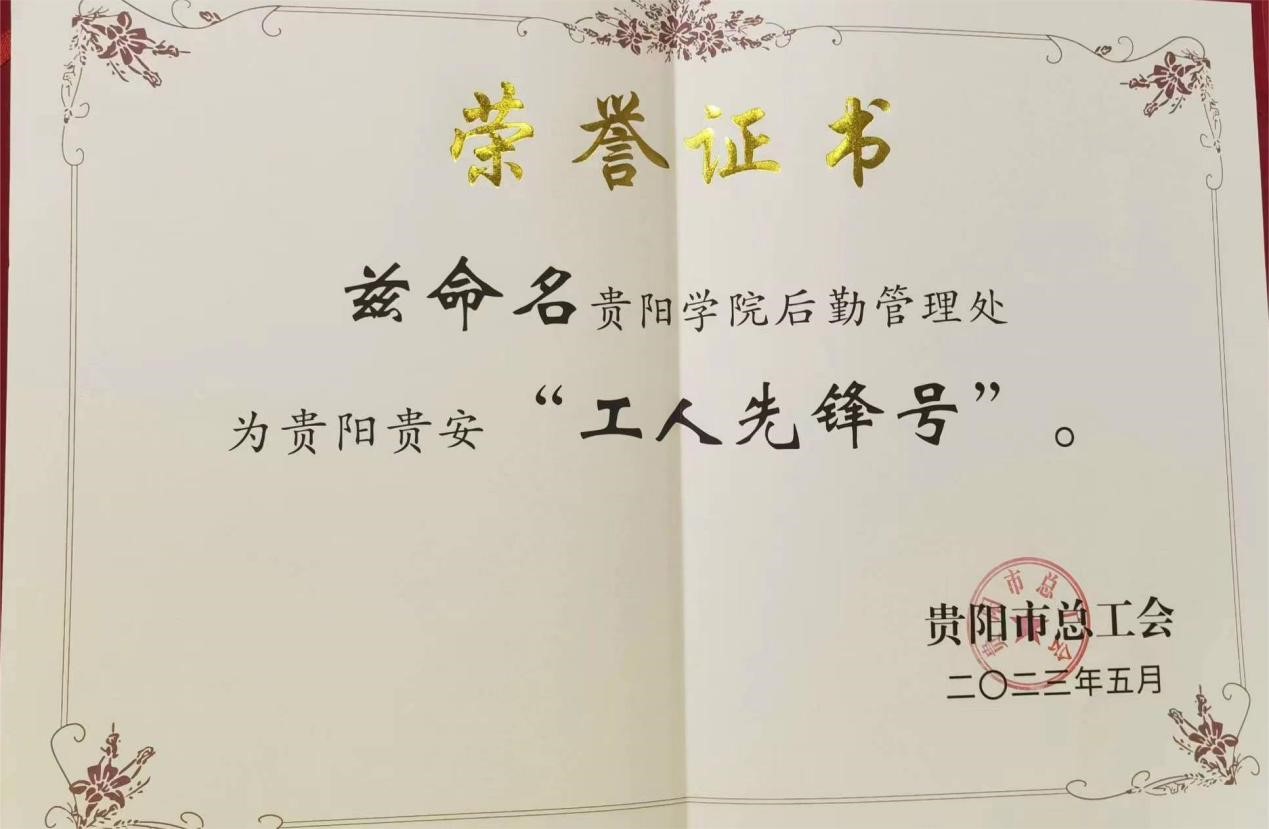 荣誉证书
兹命名贵阳学院后勤管理处
为贵阳贵安“工人先锋号”。
贵阳市总工会
二〇二三年五月
贵阳市总工会